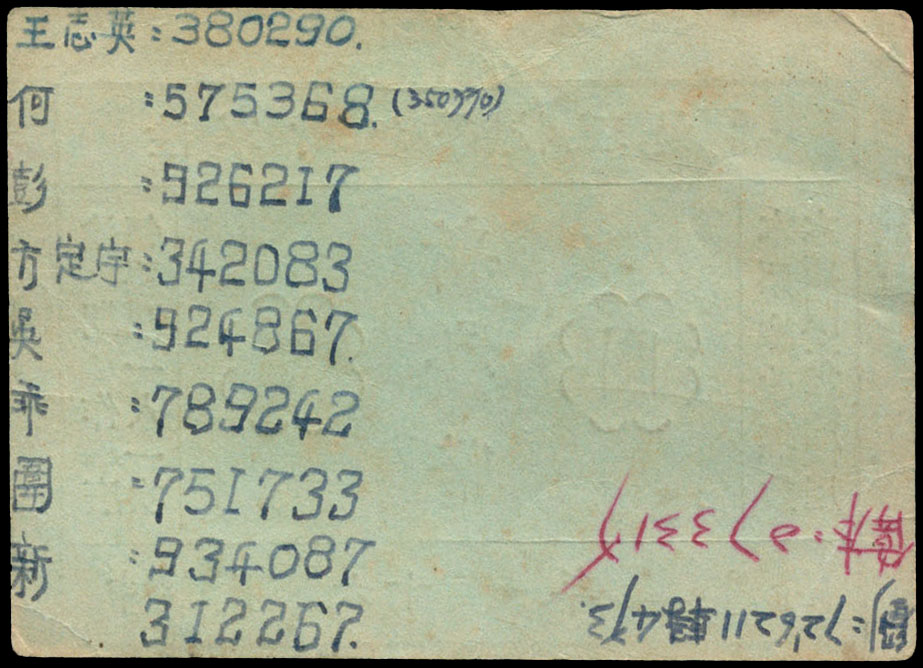 王志英:380290.
何 :575368.(350770)
彭 :926217
方定宇:342083
吳 :924867.
乖 :789242
圍 :751733
新 :934087
312267.
:726211轉473.